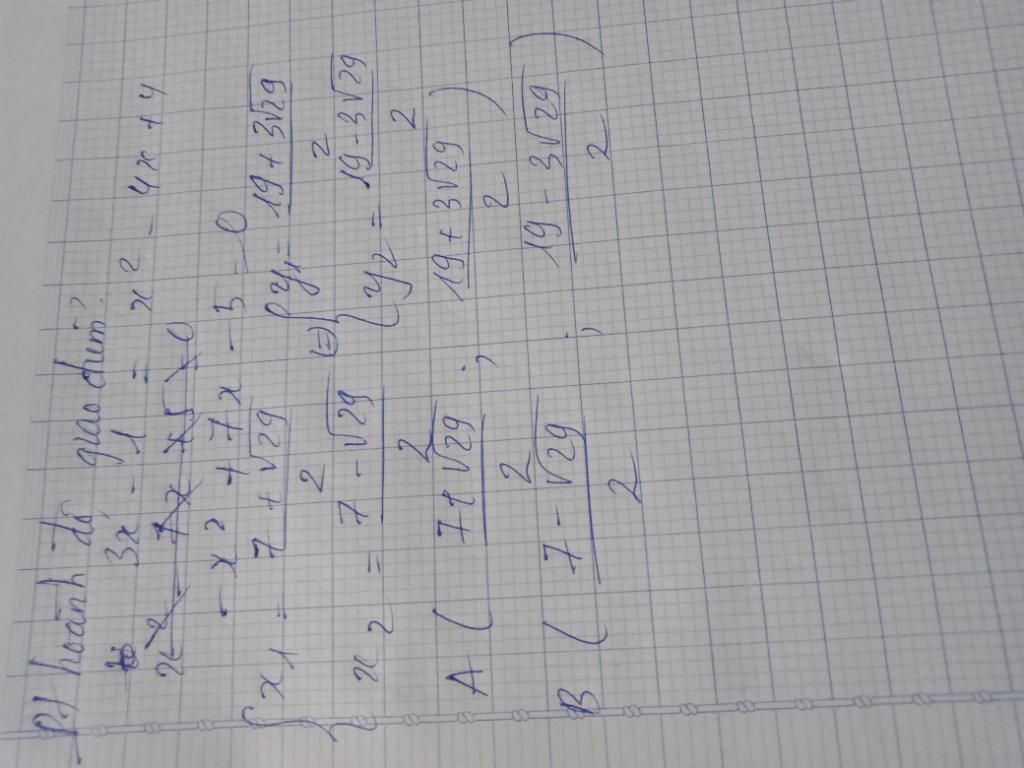 Pt hoành độ giao điểm?
3x - 1 = x² - 4x + 4
x² - 7x + 5 = 0
- x² + 7x - 5 = 0
{ x₁ = (7 + √29)/2 (=) { y₁ = (19 + 3√29)/2
x₂ = (7 - √29)/2 { y₂ = (19 - 3√29)/2
A ( (7 + √29)/2 ; (19 + 3√29)/2 )
B ( (7 - √29)/2 ; (19 - 3√29)/2 )